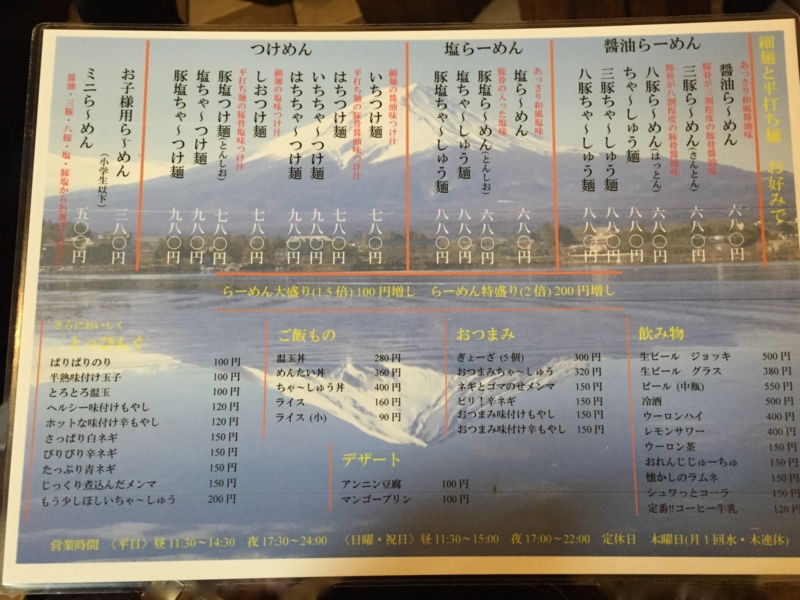 細麺と平打ち麺 お好みで
醤油らーめん
あっさり和風醤油味
醤油ら～めん 六八〇円
豚骨が三割程度の豚骨醤油味
三豚ら～めん(さんとん) 六八〇円
豚骨が八割程度の豚骨醤油味
八豚ら～めん(はっとん) 六八〇円
ちゃ～しゅう麺 八八〇円
三豚ちゃ～しゅう麺 八八〇円
八豚ちゃ～しゅう麺 八八〇円
塩らーめん
あっさり和風塩味
塩ら～めん 六八〇円
豚骨の入った塩味
豚塩ら～めん(とんしお) 六八〇円
塩ちゃ～しゅう麺 八八〇円
豚塩ちゃ～しゅう麺 八八〇円
つけめん
細麺の醤油味つけ汁
いちつけ麺 七八〇円
平打ち麺の豚骨醤油味つけ汁
はちつけ麺 七八〇円
いちちゃ～つけ麺 九八〇円
はちちゃ～つけ麺 九八〇円
細麺の塩味つけ汁
しおつけ麺 七八〇円
平打ち麺の豚骨塩味つけ汁
豚塩つけ麺(とんしお) 七八〇円
塩ちゃ～つけ麺 九八〇円
豚塩ちゃ～つけ麺 九八〇円
お子様用ら～めん (小学生以下) 三八〇円
ミニら～めん 五〇〇円
醤油・三豚・八豚・塩・豚塩からお選び
らーめん大盛り(1.5倍)100円増し らーめん特盛り(2倍)200円増し
さらにおいしく
とっぴんぐ
ぱりぱりのり 100円
半熟味付け玉子 100円
とろとろ温玉 100円
ヘルシー味付けもやし 120円
ホットな味付け辛もやし 120円
さっぱり白ネギ 150円
ぴりぴり辛ネギ 150円
たっぷり青ネギ 150円
じっくり煮込んだメンマ 150円
もう少しほしいちゃ～しゅう 200円
ご飯もの
温玉丼 280円
めんたい丼 360円
ちゃ～しゅう丼 400円
ライス 160円
ライス (小) 90円
デザート
アンニン豆腐 100円
マンゴープリン 100円
おつまみ
ぎょーざ (5個) 300円
おつまみちゃ～しゅう 320円
ネギとゴマのせメンマ 150円
ピリ!辛ネギ 150円
おつまみ味付けもやし 150円
おつまみ味付け辛もやし 150円
飲み物
生ビール ジョッキ 500円
生ビール グラス 380円
ビール (中瓶) 550円
冷酒 500円
ウーロンハイ 400円
レモンサワー 400円
ウーロン茶 150円
おれんじじゅーちゅ 150円
懐かしのラムネ 150円
シュワっとコーラ 150円
定番!!コーヒー牛乳 120円
営業時間 〈平日〉昼 11:30～14:30 夜 17:30～24:00 〈日曜・祝日〉昼 11:30～15:00 夜 17:00～22:00 定休日 木曜日(月1回水・木連休)